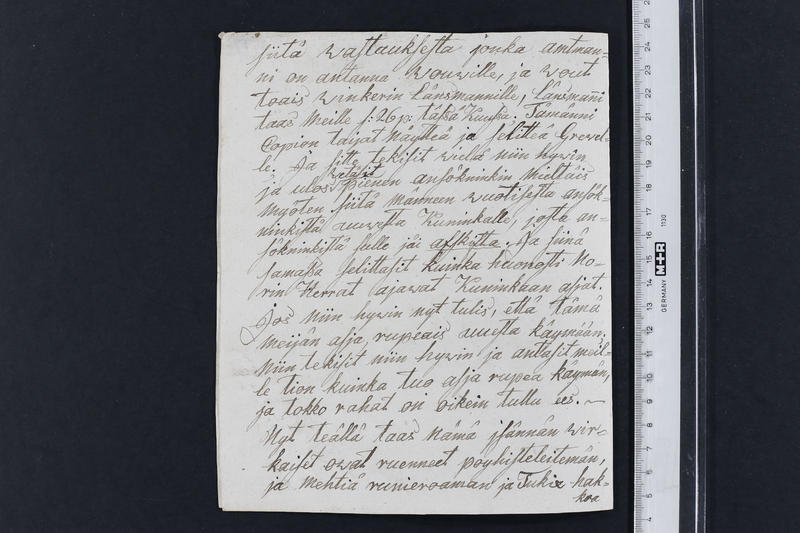 siitä wastauksesta jonka amtman-
ni on antanna Wouwille, ja Wout
toais winkerin Länsmannille, Länsmañi
taas Meille f: 26 p: tässä Kuussa. Tämänni
Copion taijat Näytteä ja selitteä Grevel-
le. Ja sitte tekisit wielä niin hywin
wetäsit
ja ulos pienen ansökninkin mieltäis
myöten siitä Männeen wuotisesta ansök-
ninkistä uuwesta Kuninkalle, josta an-
sökninkistä sulle jäi afskitta. Ja siinä
samassa selittäsit kuinka huonosti No-
rin Herrat ajawat Kuninkaan asjat.
Jos Niin hywin nyt tulis, että tämä
meijän asja rupeais uuesta käymään.
Niin tekisit niin hywin ja antasit meil-
le tion kuinka tuo asja rupea käymän,
ja tokko rahat on oikein tullu ees. ~
Nyt teällä taas Nämä isännän wir-
kaiset owat ruenneet pöyhisteleitemän,
ja Mehtiä runieroaman ja Tukia hak-
koa
GERMANY M+R 1130
25
24
23
22
21
20
19
18
17
16
15
14
13
12
11
10
9
8
7
6
5
4